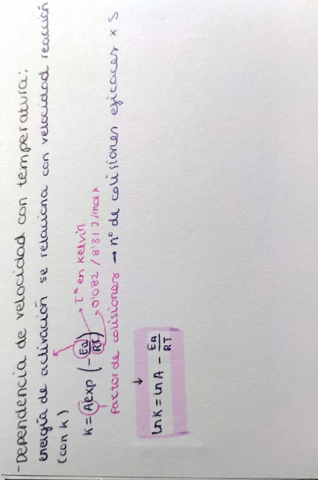 -Dependencia de velocidad con temperatura:
energía de activación se relaciona con velocidad reacción
(con k)
→ Tª en Kelvin
K = A exp (- Ea/RT) → 0'082 / 8'31 J/molK
factor de colisiones → nº de colisiones eficaces x s
↓
lnK = lnA - Ea/RT